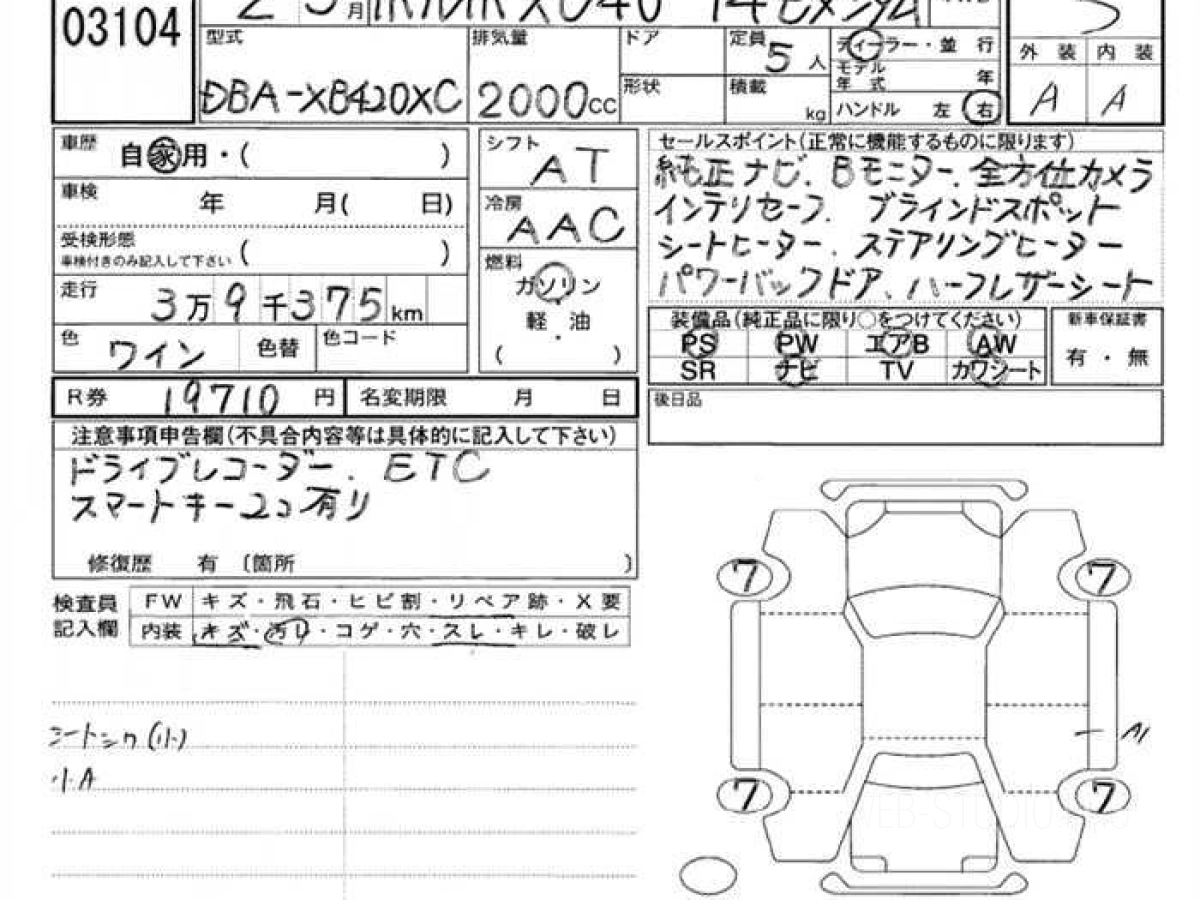 03104
月
型式 DBA-XB420XC
排気量 2000cc
ドア
形状
定員 5人
積載 kg
ディーラー・並 行
モデル年式 年
ハンドル 左 右
外 装 内 装
A A
車歴 自家用・( )
車検 年 月( 日)
受検形態 ( )
車検付きのみ記入して下さい
走行 3万9千375km
色 ワイン 色替 色コード
シフト AT
冷房 AAC
燃料 ガソリン
軽・油
( )
セールスポイント(正常に機能するものに限ります)
純正ナビ、Bモニター、全方位カメラ
インテリセーフ、ブラインドスポット
シートヒーター、ステアリングヒーター
パワーバックドア、ハーフレザーシート
装備品(純正品に限り○をつけてください)
PS PW エアB AW
SR ナビ TV カワシート
新車保証書
有・無
後日品
R券 19710 円 名変期限 月 日
注意事項申告欄(不具合内容等は具体的に記入して下さい)
ドライブレコーダー、ETC
スマートキー2コ有り
修復歴 有 〔箇所 〕
検査員記入欄
FW キズ・飛石・ヒビ割・リペア跡・X要
内装 キズ・汚れ・コゲ・穴・スレ・キレ・破レ
シートシワ(小)
小A
7 7
A1
7 7